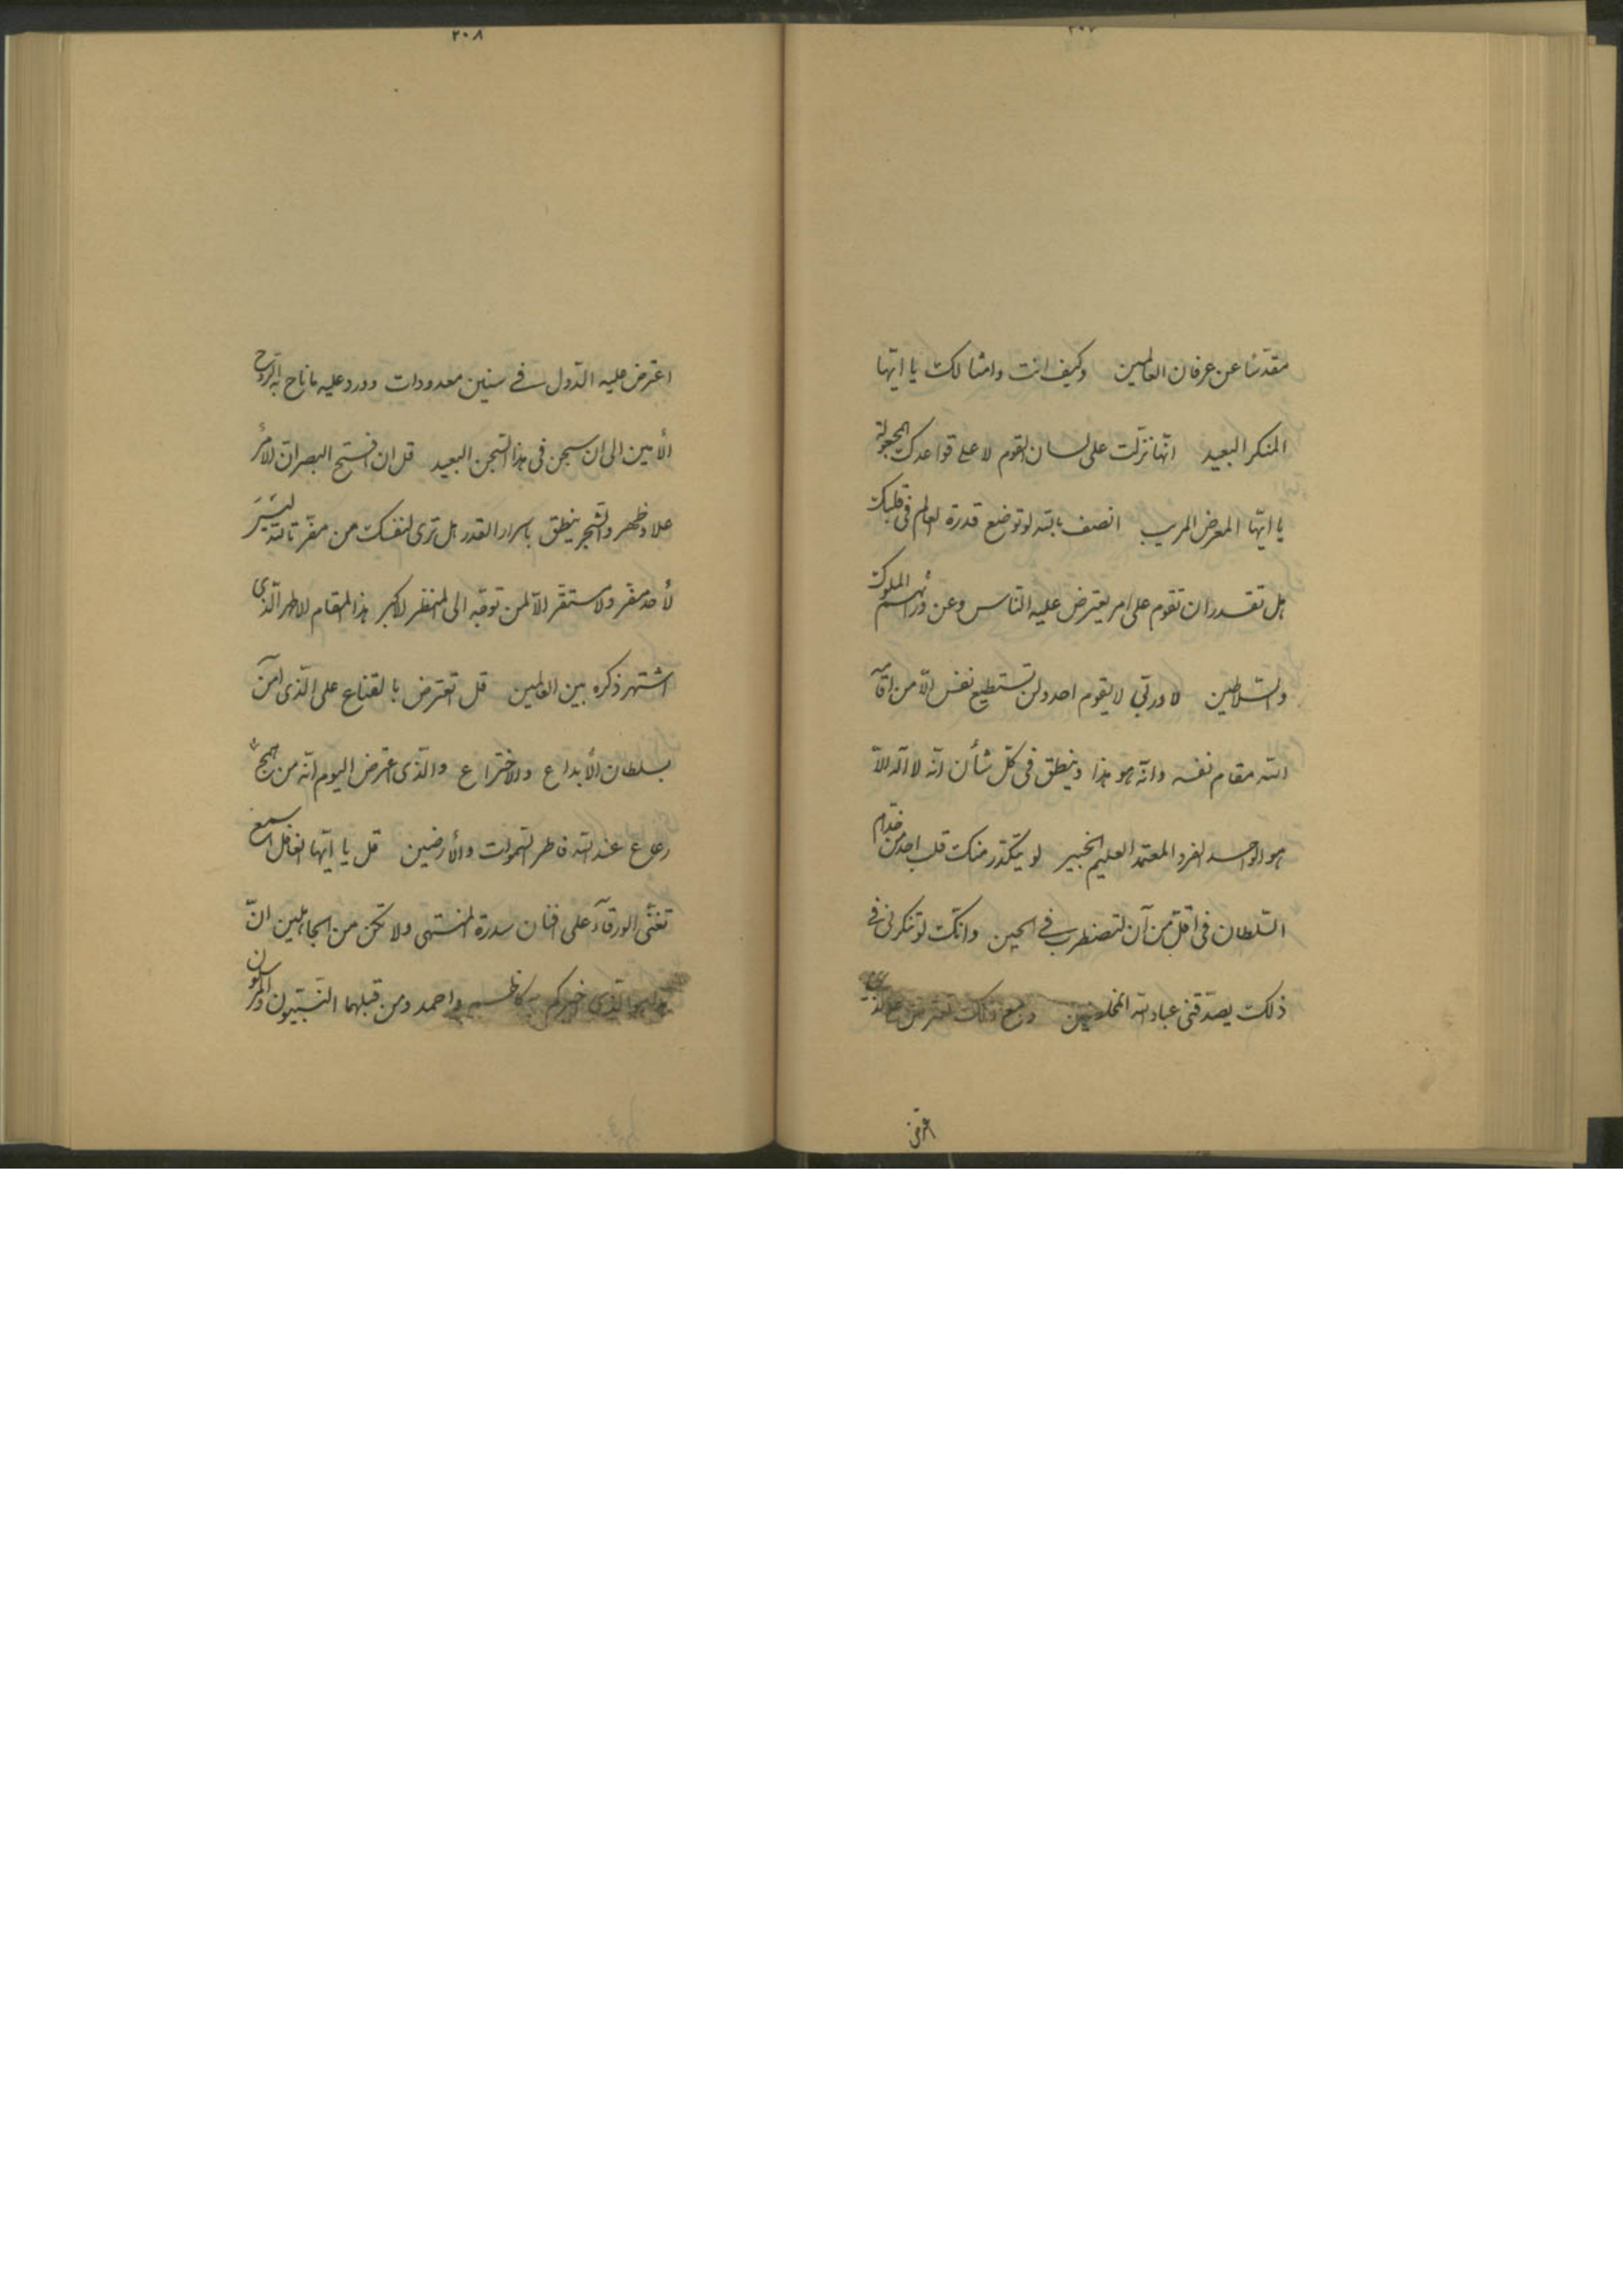 مقدّسًا عن عرفان العالمين وكيف انت وامثالك يا ايّها
المنكر البعيد انّها نزّلت على لسان القوم لا على قواعدك المجعولة
يا ايّها المعرض المريب انصف بالله لو توضع قدرة العالم فى قلبك
هل تقدر ان تقوم على امر يعترض عليه الناس وعن ورائهم الملوك
والسّلاطين لا وربّي لا يقوم احد ولن تستطيع نفس الّا من اقامه
الله مقام نفسه وانّه هو هذا وينطق فى كلّ شأن انّه لا اله الّا
هو الواحد الفرد المعتمد العليم الخبير لو يتكدّر منك قلب احد من خدّام
السّلطان فى اقلّ من آن لتضطرب فى الحين وانّك لو تنكرنى فى
ذلك يصدّقنى عباد الله المخلصين ومع ذلك تعترض على الّذى
اعترض
٢٠٨
اعترض عليه الدّول فى سنين معدودات وورد عليه ما ناح به الرّوح
الأمين الى ان سجن فى هذا السّجن البعيد قل ان افتح البصر انّ الأمر
علا وظهر والشّجر ينطق باسرار القدر هل ترى لنفسك من مفرّ تالله ليس
لأحد مفر ولا مستقر الّا لمن توجّه الى المنظر الاكبر هذا المقام الاطهر الّذى
اشتهر ذكره بين العالمين قل تعترض بالقناع على الّذى آمن
بسلطان الأبداع والاختراع والّذى اعترض اليوم انّه من همج
رعاع عند الله فاطر السّموات والأرضين قل يا ايّها الغافل اسمع
تغنّى الورقآء على افنان سدرة المنتهى ولا تكن من الجاهلين انّ
هذا لهو الّذى اخبركم به كاظم واحمد ومن قبلهما النّبيّون والمرسلون